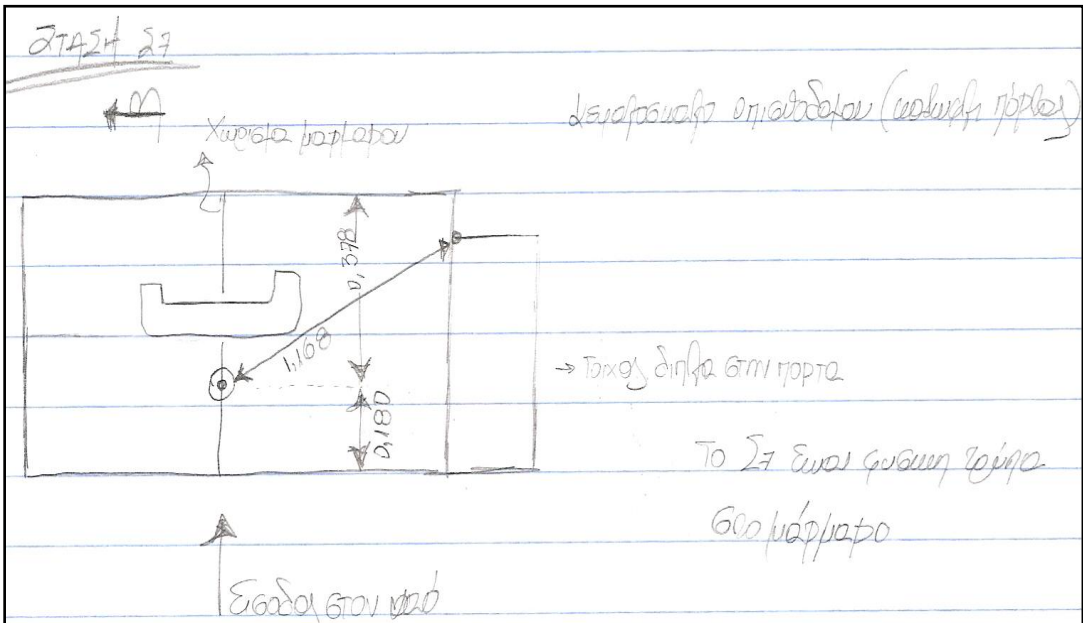 ΣΤΑΣΗ Σ7
Β
Χώρισμα μαρμαρου
οπισθόδομου (κεντρική πόρτα)
0,378
1,168
0,180
→ Τοίχος δίπλα στην πορτα
Το Σ7 είναι φυσική τρύπα
στο μάρμαρο
Είσοδος στον ναό